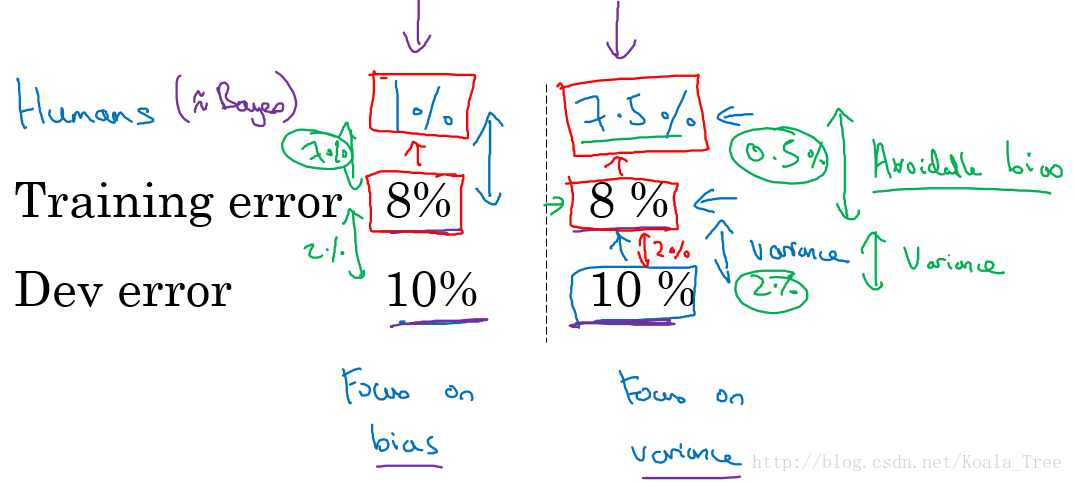 Humans (≈ Bayes) 1% 7.5%
7% 0.5% Avoidable bias
Training error 8% 8 %
2% 2% Variance Variance
Dev error 10% 10 % 2%
Focus on Focus on
bias variance
http://blog.csdn.net/Koala_Tree